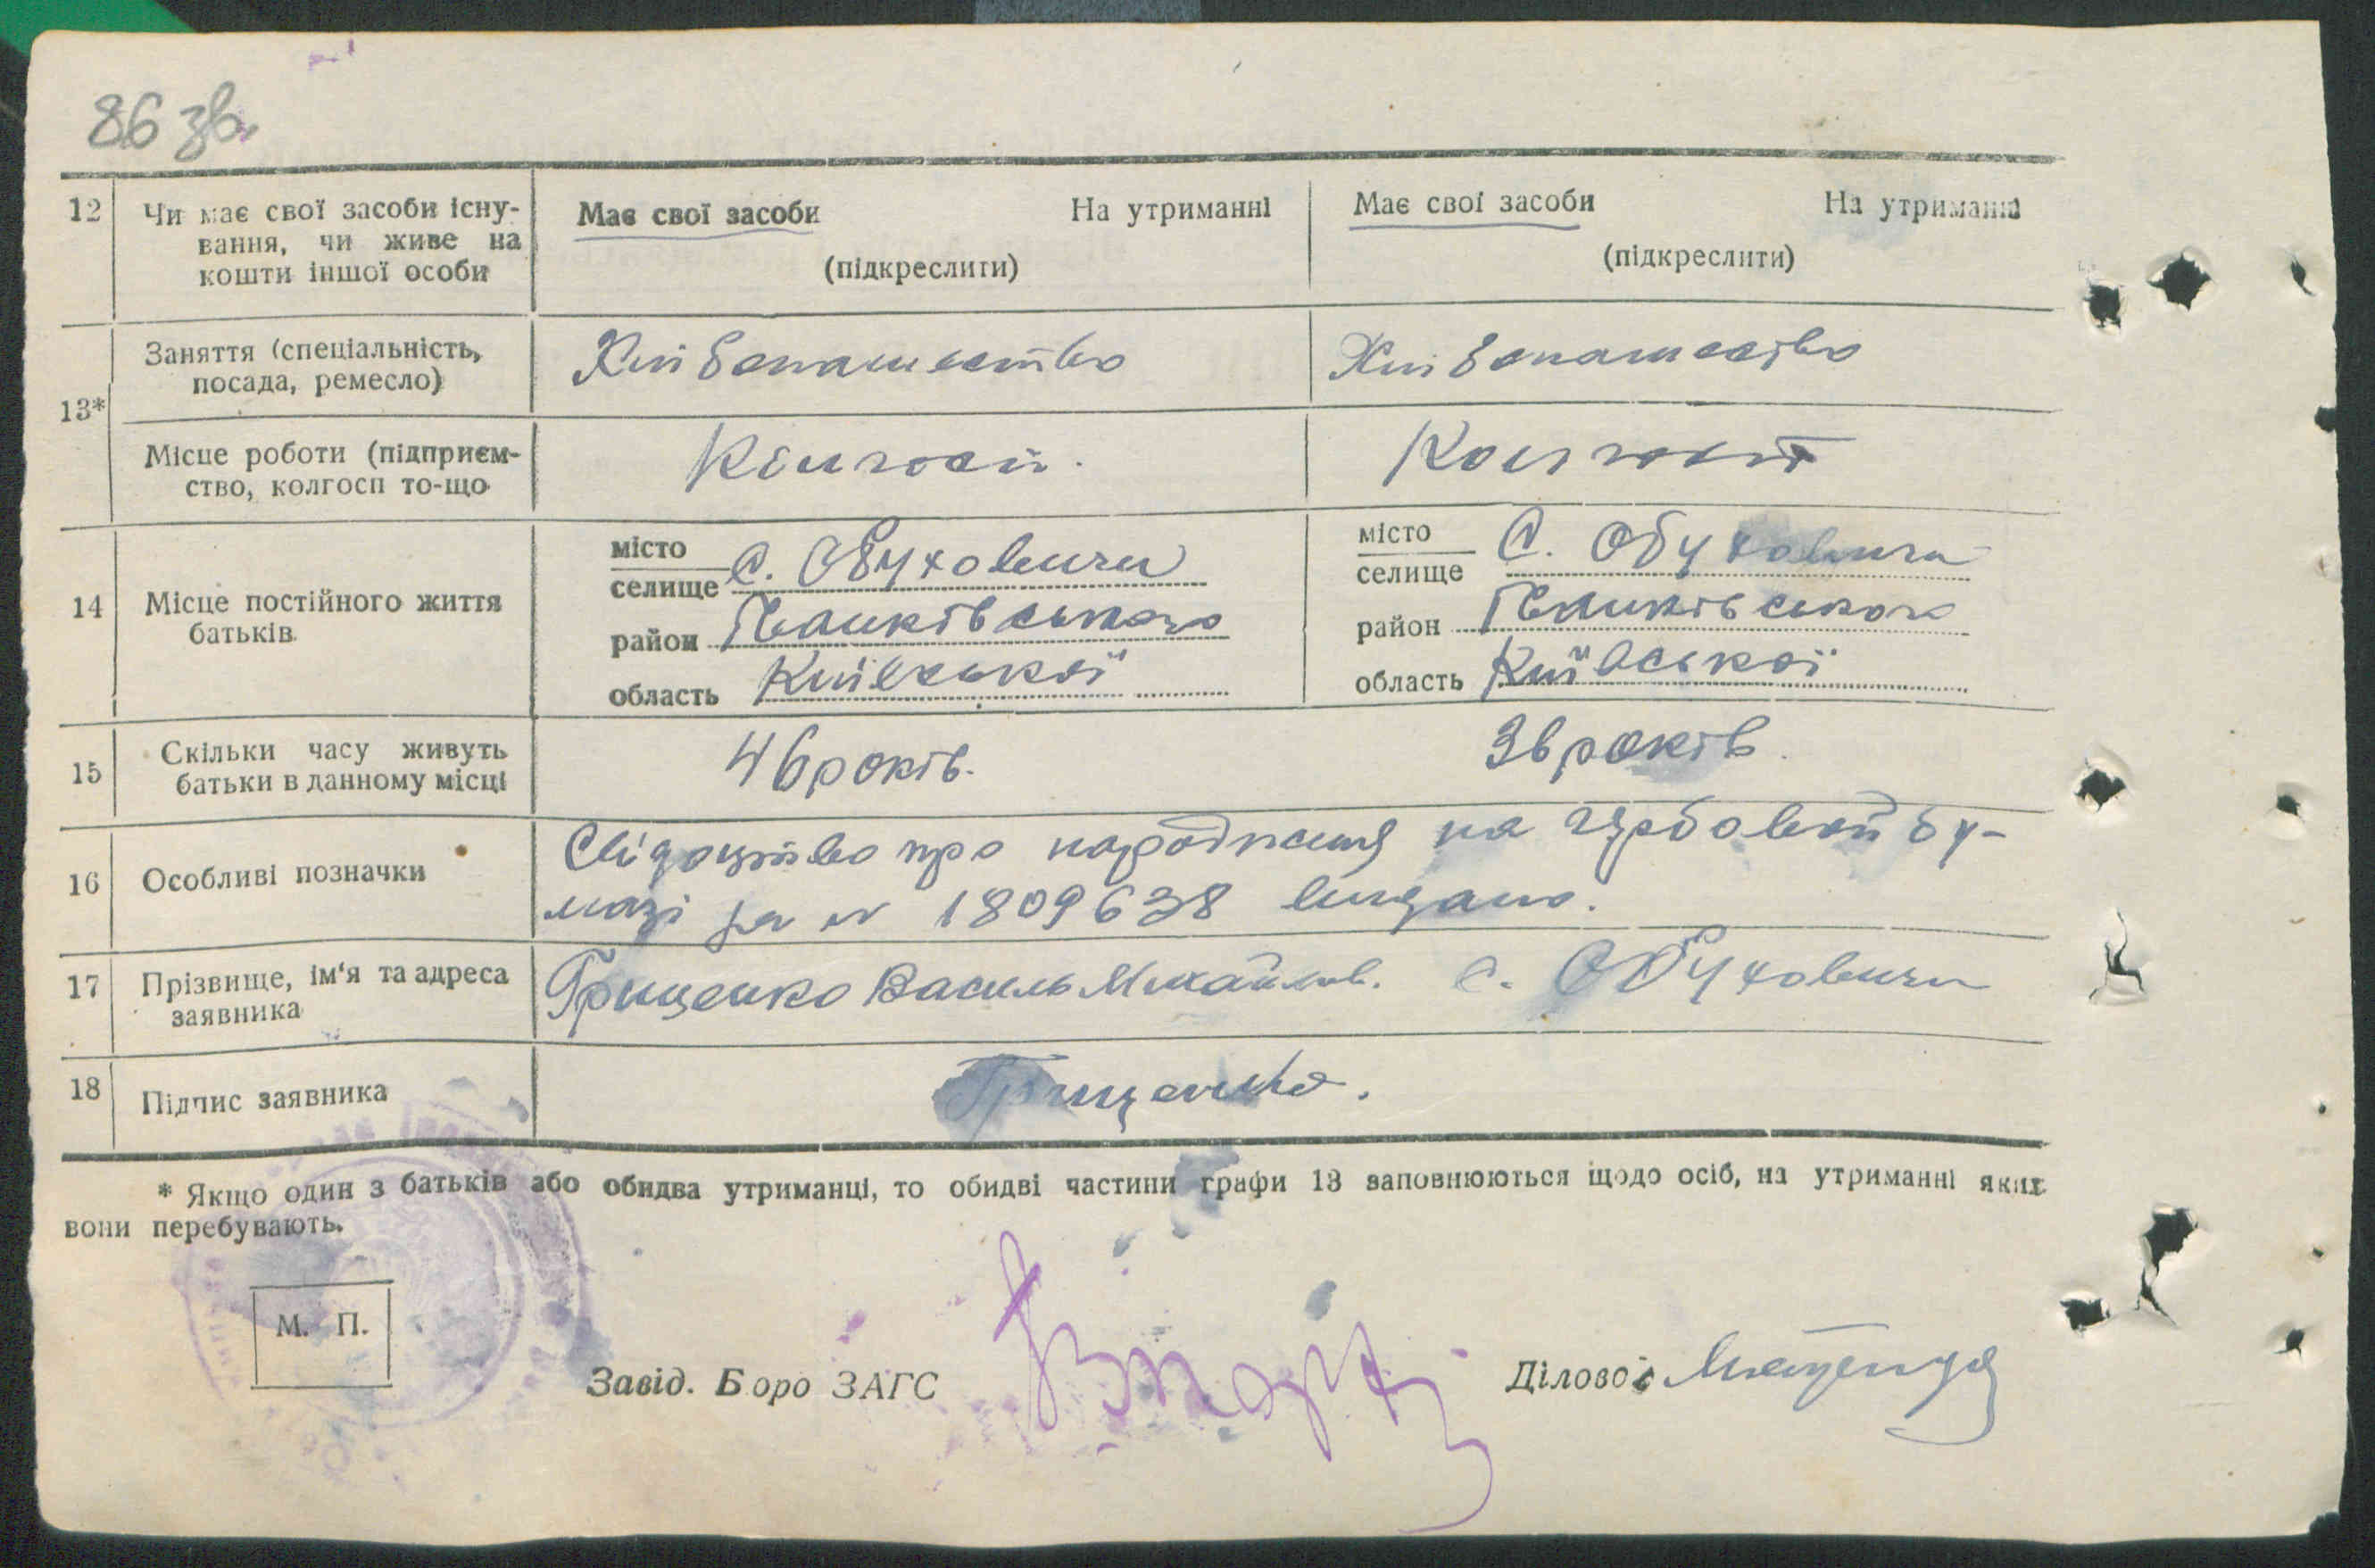 86 зв.
12 Чи має свої засоби існу- Має свої засоби На утриманні Має свої засоби На утриманні
вання, чи живе на
кошти іншої особи (підкреслити) (підкреслити)
Заняття (спеціальність, Хлібопашество Хлібопашество
посада, ремесло)
13*
Місце роботи (підприєм- Колгосп. Колгосп
ство, колгосп то-що
14 Місце постійного життя батьків
місто селище С. Обуховичи місто селище С. Обуховичи
район Іванківського район Іванківського
область Київської область Київської
15 Скільки часу живуть 46 років. 36 років.
батьки в данному місці
16 Особливі позначки Свідоцтво про народження на гербовой бу-
мазі за № 1809638 видано.
17 Прізвище, ім'я та адреса Грищенко Василь Михайлов. с. Обуховичи
заявника
18 Підпис заявника Грищенко.
* Якщо один з батьків або обидва утриманці, то обидві частини графи 13 заповнюються щодо осіб, на утриманні яких
вони перебувають.
М. П.
Завід. Бюро ЗАГС Діловод